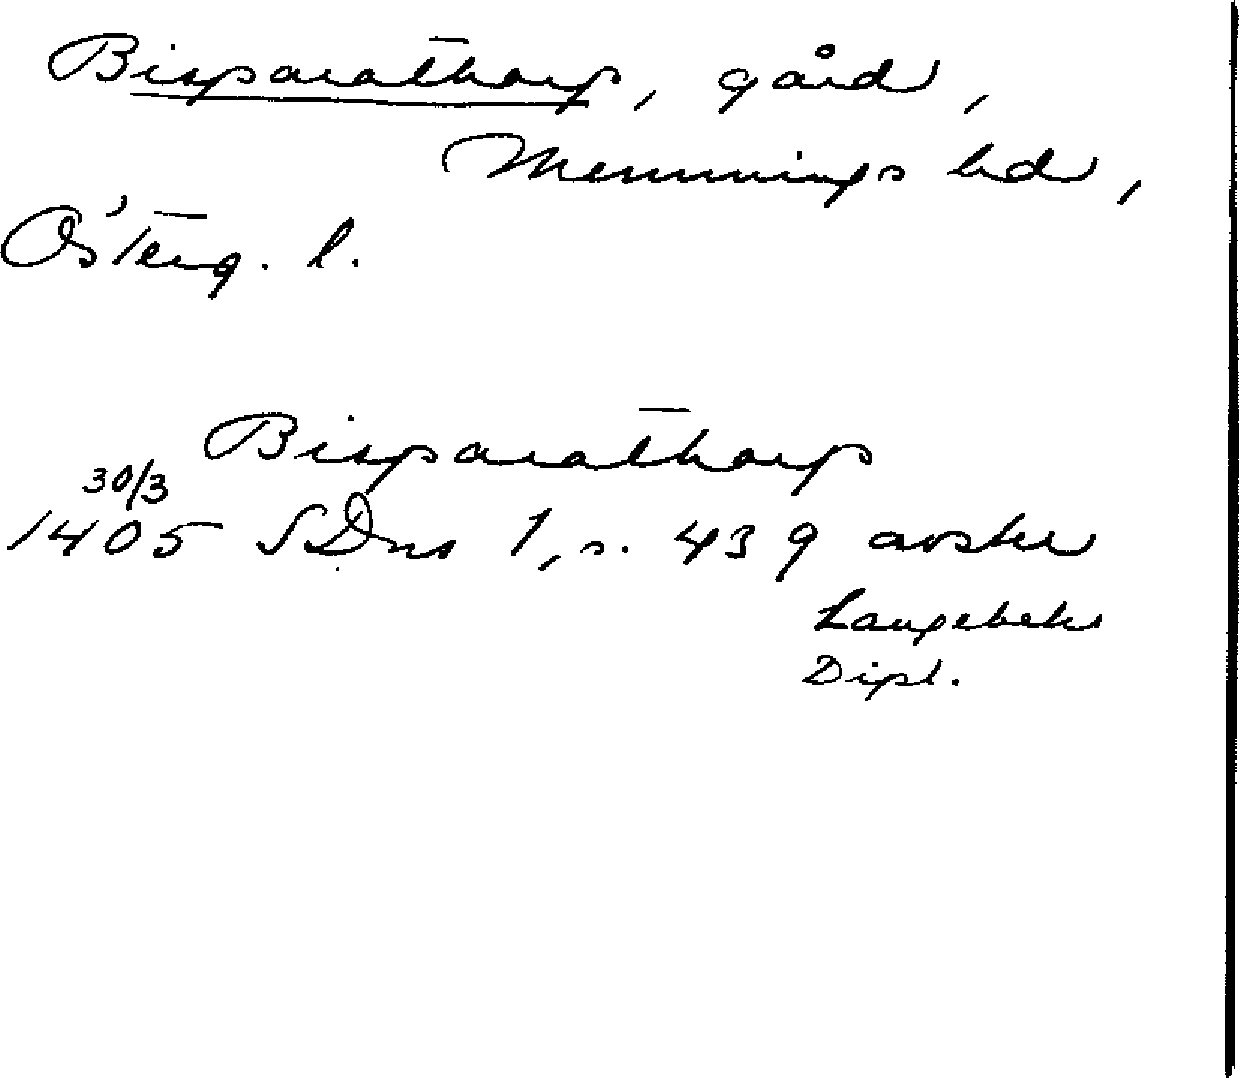 Bisparathorp, gård,
Memmings hd,
Österg. l.
Bisparathorp
30/3
1405 SDns 1, s. 439 avskr
Langebeks
Dipl.